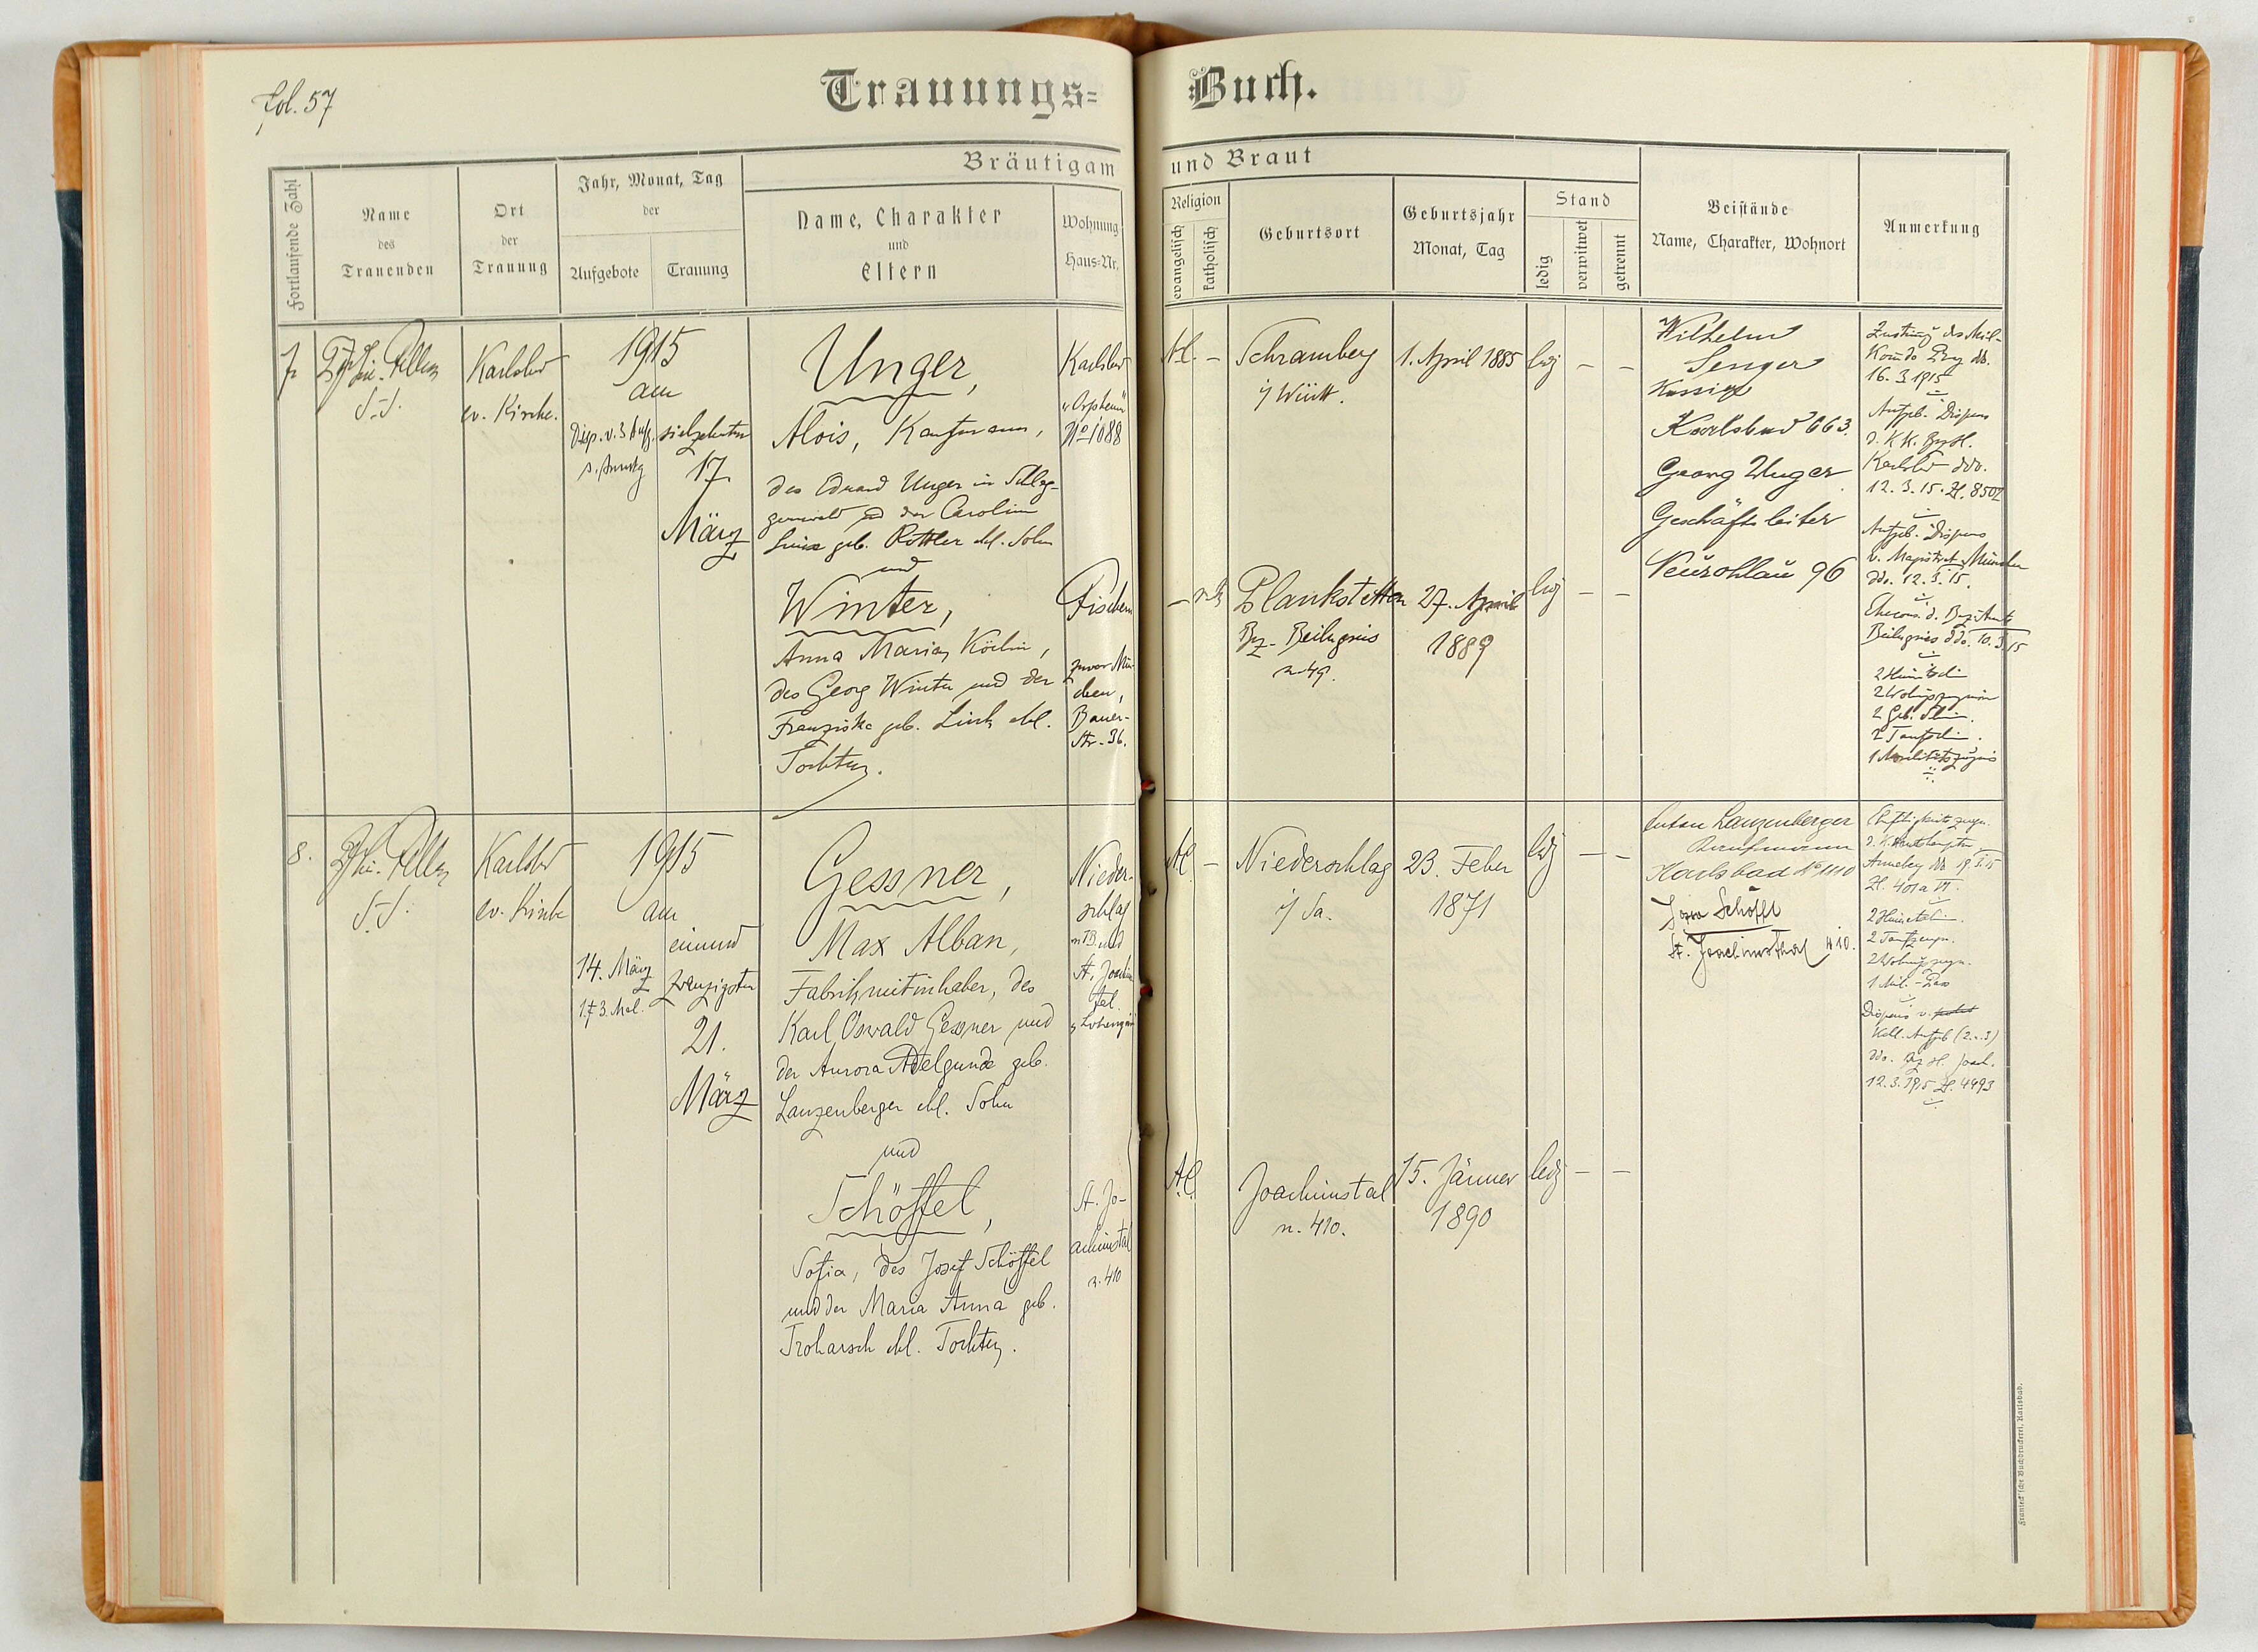 fol. 57
Trauungs=Buch.
Bräutigam und Braut
Fortlaufende Zahl
Name
des
Trauenden
Ort
der
Trauung
Jahr, Monat, Tag
der
Aufgebote
Trauung
Name, Charakter
und
Eltern
Wohnung
Haus=Nr.
Religion
evangelisch
katholisch
Geburtsort
Geburtsjahr
Monat, Tag
Stand
ledig
verwitwet
getrennt
Beistände
Name, Charakter, Wohnort
Anmerkung
7.
Karlsbad
ev. Kirche.
1915
am
Disp. v. 3 Aufg.
s. Anmkg
siebzehnten
17.
März
Unger,
Alois, Kaufmann,
des Eduard Unger in Schlag-
genwald und der Carolina
Luise geb. Rottler ehl. Sohn
und
Winter,
Anna Maria, Köchin,
des Georg Winter und der
Franziska geb. Link ehl.
Tochter.
Karlsbad
"Orpheum"
No 1088
Fischern
zuvor Mün-
chen,
Bauer-
Str. 36.
A.C. –
Schramberg
i/ Württ.
1. April 1885
ledig – –
Plankstetten
Bz. Beilngries
n. 49.
27. April
1889
ledig – –
Wilhelm
Senger
Kassier
Karlsbad 663.
Georg Unger
Geschäftsleiter
Neurohlau 96
16. 3. 1915
Aufgeb. Dispens
d. K.K. Bzh.
Karlsbad ddo.
12. 3. 15. Zl. 8502
Aufgeb. Dispens
v. Magistrat München
ddo. 12. 3. 15.
Beilngries ddo. 10. 3. 15
2 Heimatsch.
2 Geb. Schein.
2 Taufschein.
8.
Karlsbad
ev. Kirche
1915
am
14. März
1. & 3. Mal.
einund
zwanzigsten
21.
März
Gessner,
Max Alban,
Fabriksmitinhaber, des
Karl Oswald Gessner und
der Aurora Adelgunde geb.
Lanzenberger ehl. Sohn
und
Schöffel,
Sofia, des Josef Schöffel
und der Maria Anna geb.
Troharsch ehl. Tochter.
Nieder-
schlag
und
St. Joachims
tal.
"Lohengrin"
St. Jo-
achimstal
n. 410
A.C. –
Niederschlag
i/ Sa.
23. Feber
1871
ledig – –
A.C.
Joachimstal
n. 410.
15. Jänner
1890
ledig – –
Anton Lanzenberger
Kaufmann
Karlsbad No 1110
Josef Schöffl
St. Joachimsthal 410.
2 Heimatschein.
2 Taufzeugn.
2 Wohngszeugn.
1 Mil.-Pass
Dispens v.
kath. Aufgeb (2. u. 3)
ddo. Bzh. Joach.
12. 3. 1915 Zl. 4993
Franieck'sche Buchdruckerei, Karlsbad.